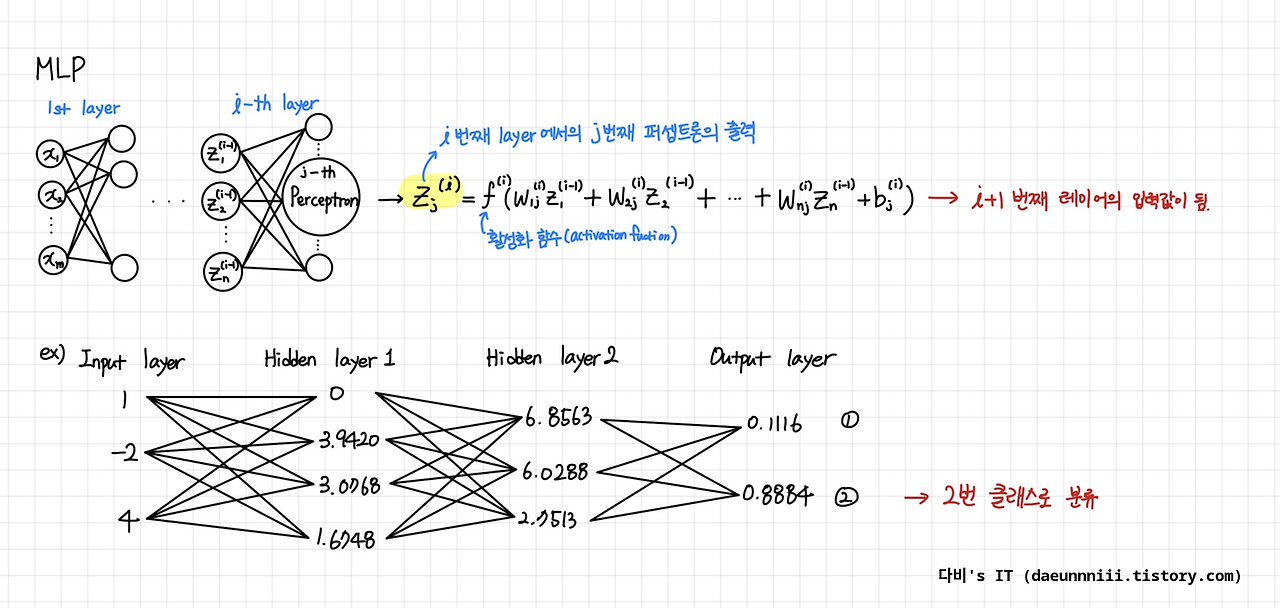 MLP
1st layer
i-th layer
x₁
x₂
⋮
xₘ
· · ·
z₁⁽ⁱ⁻¹⁾
z₂⁽ⁱ⁻¹⁾
⋮
zₙ⁽ⁱ⁻¹⁾
j-th
Perceptron
i 번째 layer에서의 j번째 퍼셉트론의 출력
→ zⱼ⁽ⁱ⁾ = f⁽ⁱ⁾(w₁ⱼ⁽ⁱ⁾z₁⁽ⁱ⁻¹⁾ + w₂ⱼ⁽ⁱ⁾z₂⁽ⁱ⁻¹⁾ + ⋯ + wₙⱼ⁽ⁱ⁾zₙ⁽ⁱ⁻¹⁾ + bⱼ⁽ⁱ⁾) → i+1 번째 레이어의 입력값이 됨.
활성화 함수(activation fuction)
ex) Input layer Hidden layer 1 Hidden layer 2 Output layer
1
-2
4
0
3.9420
3.0768
1.6748
6.8563
6.0288
2.7513
0.1116 ①
0.8884 ② → 2번 클래스로 분류
다비's IT (daeunnniii.tistory.com)